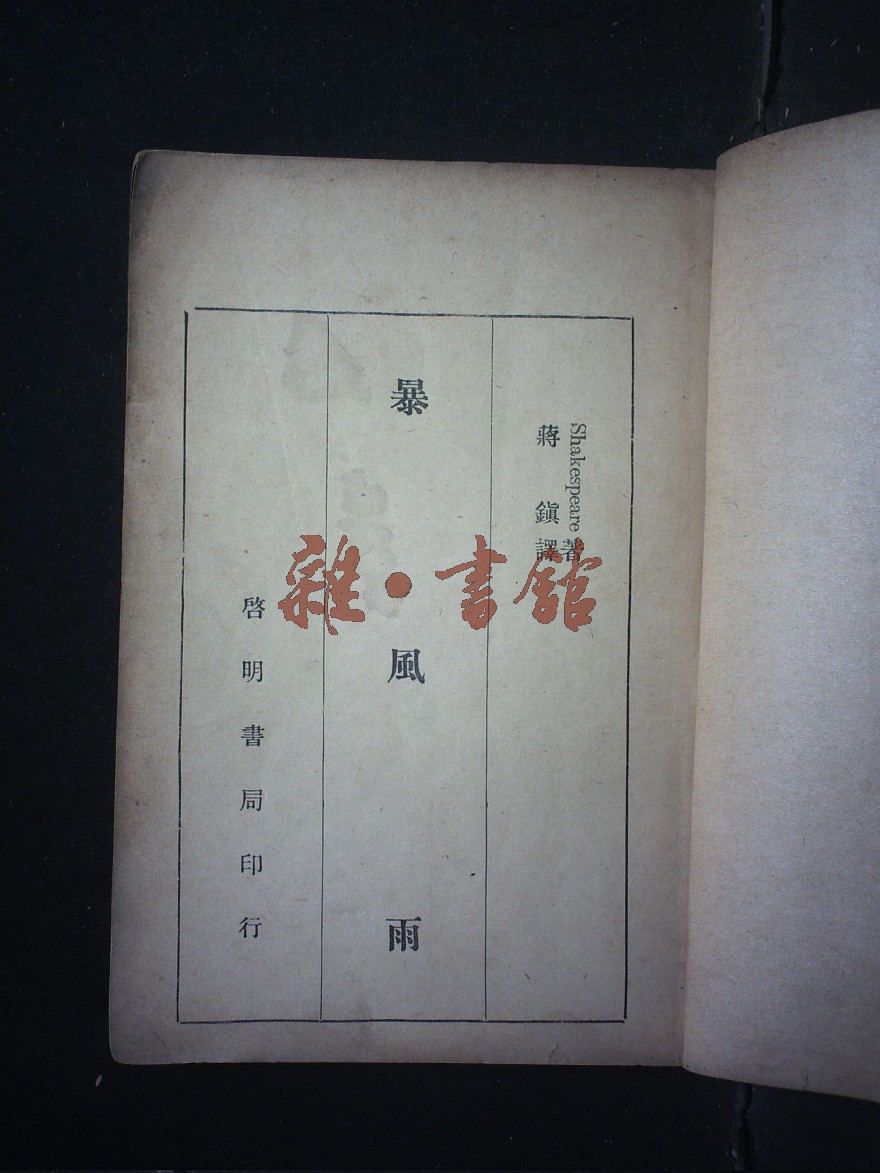 Shakespeare 著
蔣鎮譯
暴風雨
啓明書局印行
雜•書館